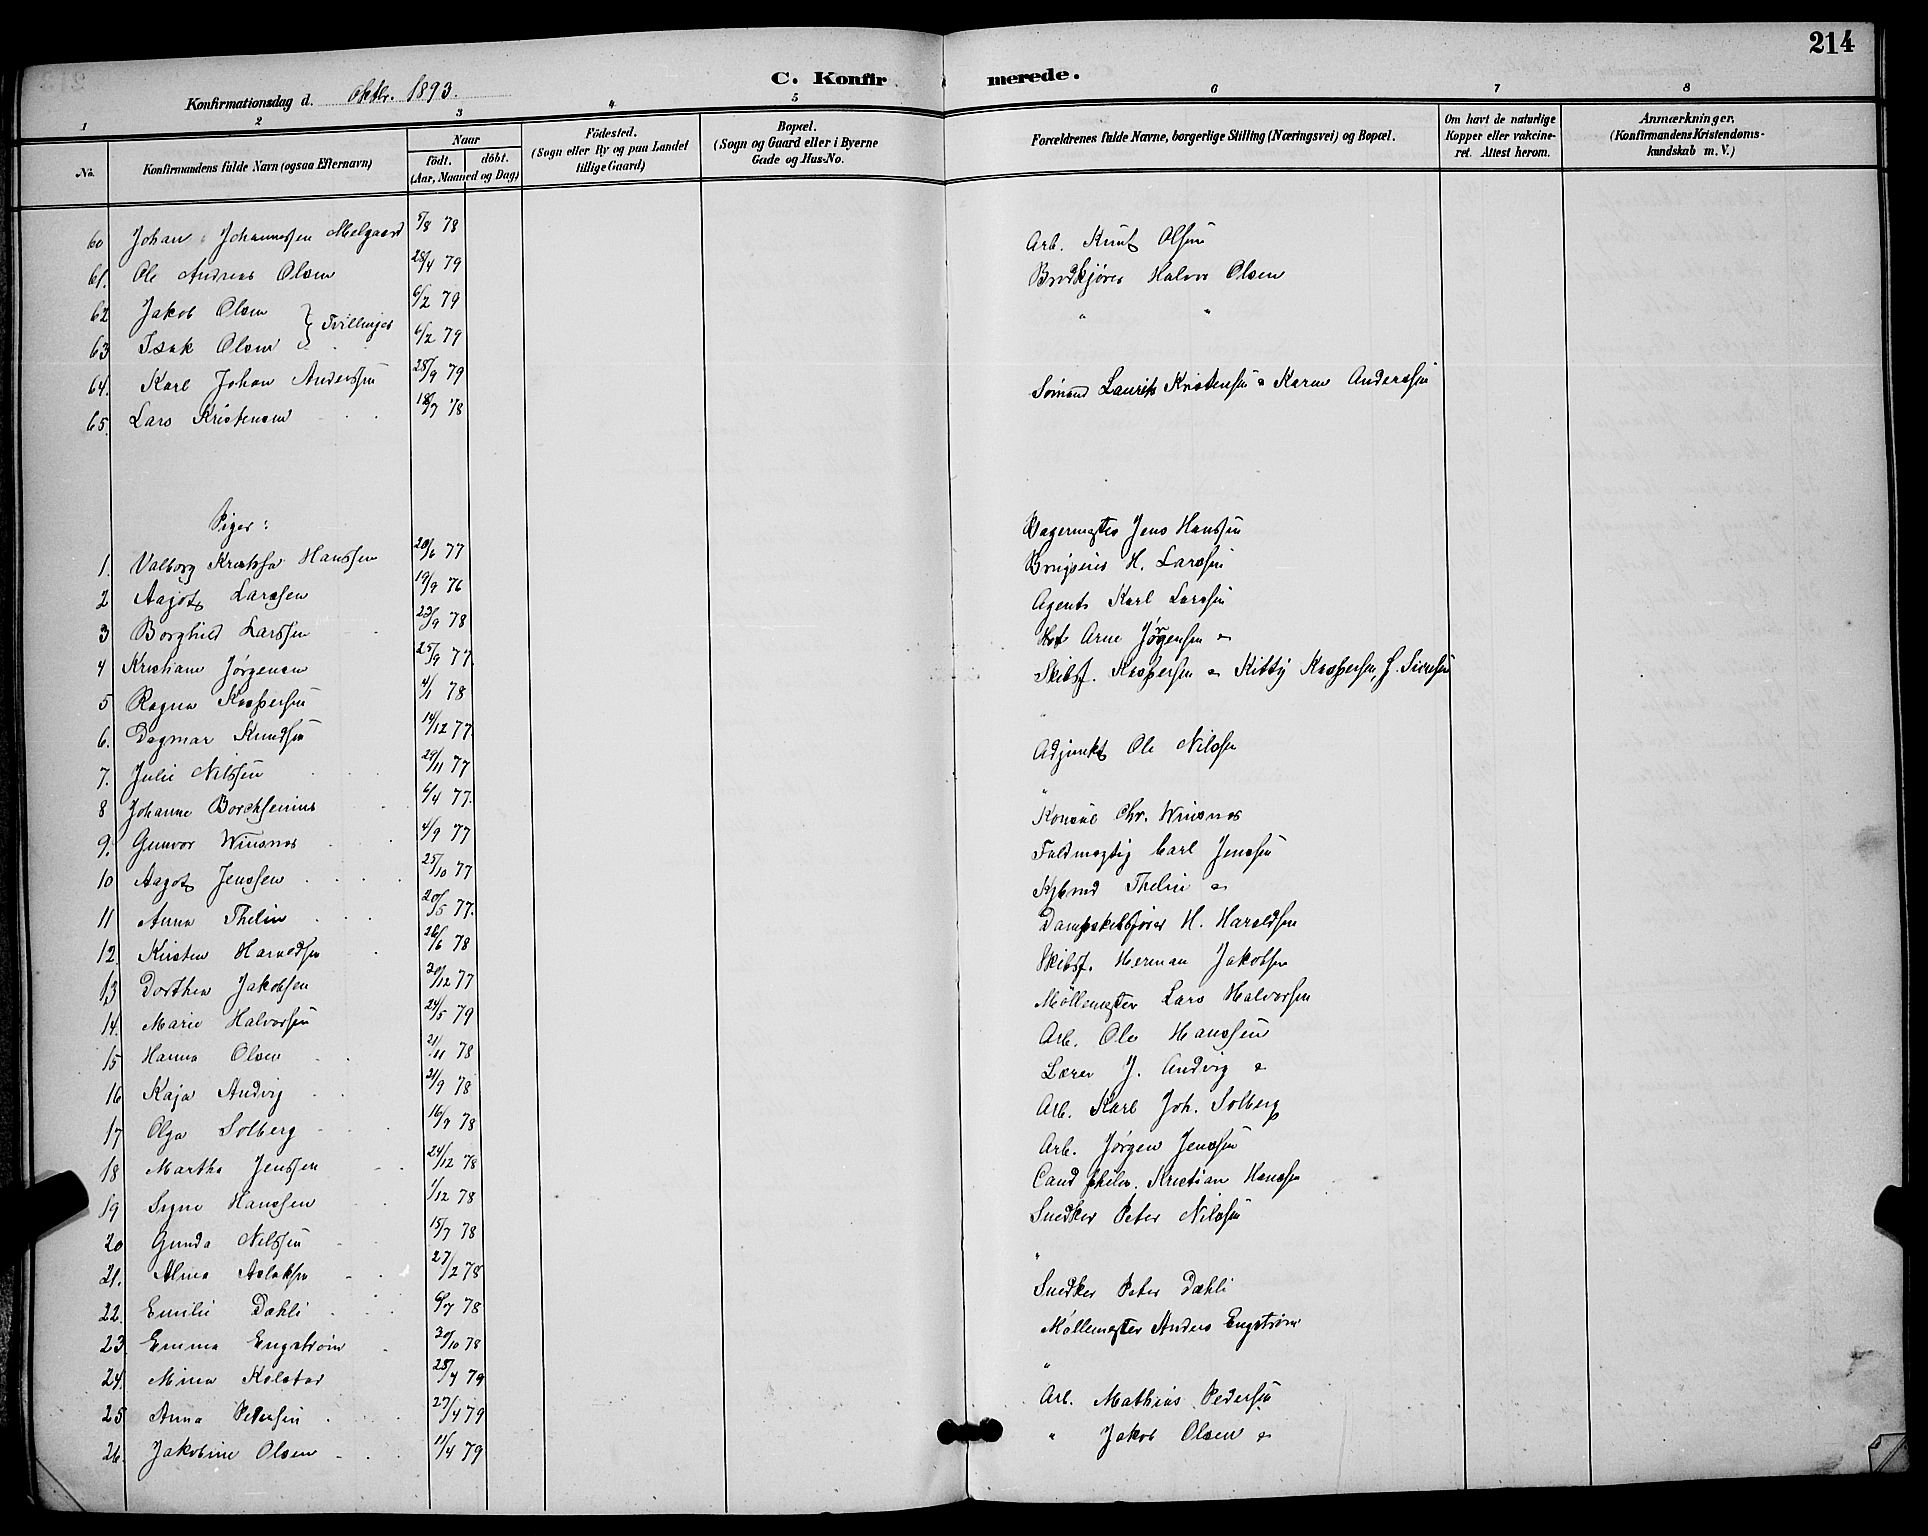 214
C. Konfirmerede.
Konfirmationsdag d. Oktbr. 1893.
1 2 3 4 5 6 7 8
No. Konfirmandens fulde Navn (ogsaa Efternavn) Naar født. døbt. (Aar, Maaned og Dag) Fødested. (Sogn eller By og paa Landet tillige Gaard) Bopæl. (Sogn og Gaard eller i Byerne Gade og Hus-No. Forældrenes fulde Navne, borgerlige Stilling (Næringsvei) og Bopæl. Om havt de naturlige Kopper eller vakcineret. Attest herom. Anmærkninger. (Konfirmandens Kristendomskundskab m. V.)
60 Johan Johannessen Melgaard 5/8 78
61. Ole Andreas Olsen 28/4 79 Arb. Knut Olsen
62 Jakob Olsen } Tvillinger 6/2 79 Brødkjører Halvor Olsen
63 Isak Olsen 6/2 79 " "
64. Karl Johan Anderssen 28/9 79
65. Lars Kristensen 18/7 78 Sømand Laurits Kristensen & Karen Anderssen
Piger:
1. Valborg Hanssen 20/6 77 Jens Hanssen
2 Aagot Larssen 19/9 76 H. Larssen
3 Borghild Larssen 22/9 78 Agent Karl Larssen
4 Kristiane Jørgensen 25/9 77. Arne Jørgensen &
5 Ragna Kaspersen 4/1 78 Skibsf. Kaspersen & Kitty Kaspersen, f.
6. Dagmar Knudsen 14/12 77. "
7. Julie Nilssen 29/11 77 Adjunkt Ole Nilssen
8 Johanne Borchsenius 6/4 77. "
9. Gunvor Winsnes 4/9 77 Konsul Chr. Winsnes
10 Aagot Jenssen 25/10 77 Fuldmægtig Carl Jenssen
11 Anna Thelin 20/5 77. Kjbmd Thelin &
12. Kirsten Haraldsen 26/6 78 Dampskibsfører H. Haraldsen
13 Dorthea Jakobsen 20/12 77 Skibsf. Herman Jakobsen
14. Marie Halvorsen 24/5 79 Møllemester Lars Halvorsen
15 Hanna Olsen 21/11 78 Arb. Ole Hanssen
16 Kaja Andvig 21/9 78 Lærer J. Andvig &
17 Olga Solberg 16/7 78 Arb. Karl Joh. Solberg
18 Martha Jenssen 24/12 78 Arb. Jørgen Jenssen
19 Signe Hanssen 1/12 78 Cand philos. Kristian Hanssen
20 Gunda Nilssen 15/7 78 Snedker Peter Nilssen
21. Alma Aslaksen 27/2 78 "
22. Emilie Dæhli 6/7 78 Snedker Peter Dæhli
23. Emma Engstrøm 30/10 78 Møllemester Anders Engstrøm
24. Mina Kolstad 28/4 79 "
25 Anna Pedersen 27/4 79 Arb. Mathias Pedersen
26. Jakobine Olsen 11/4 79 " Jakob Olsen &